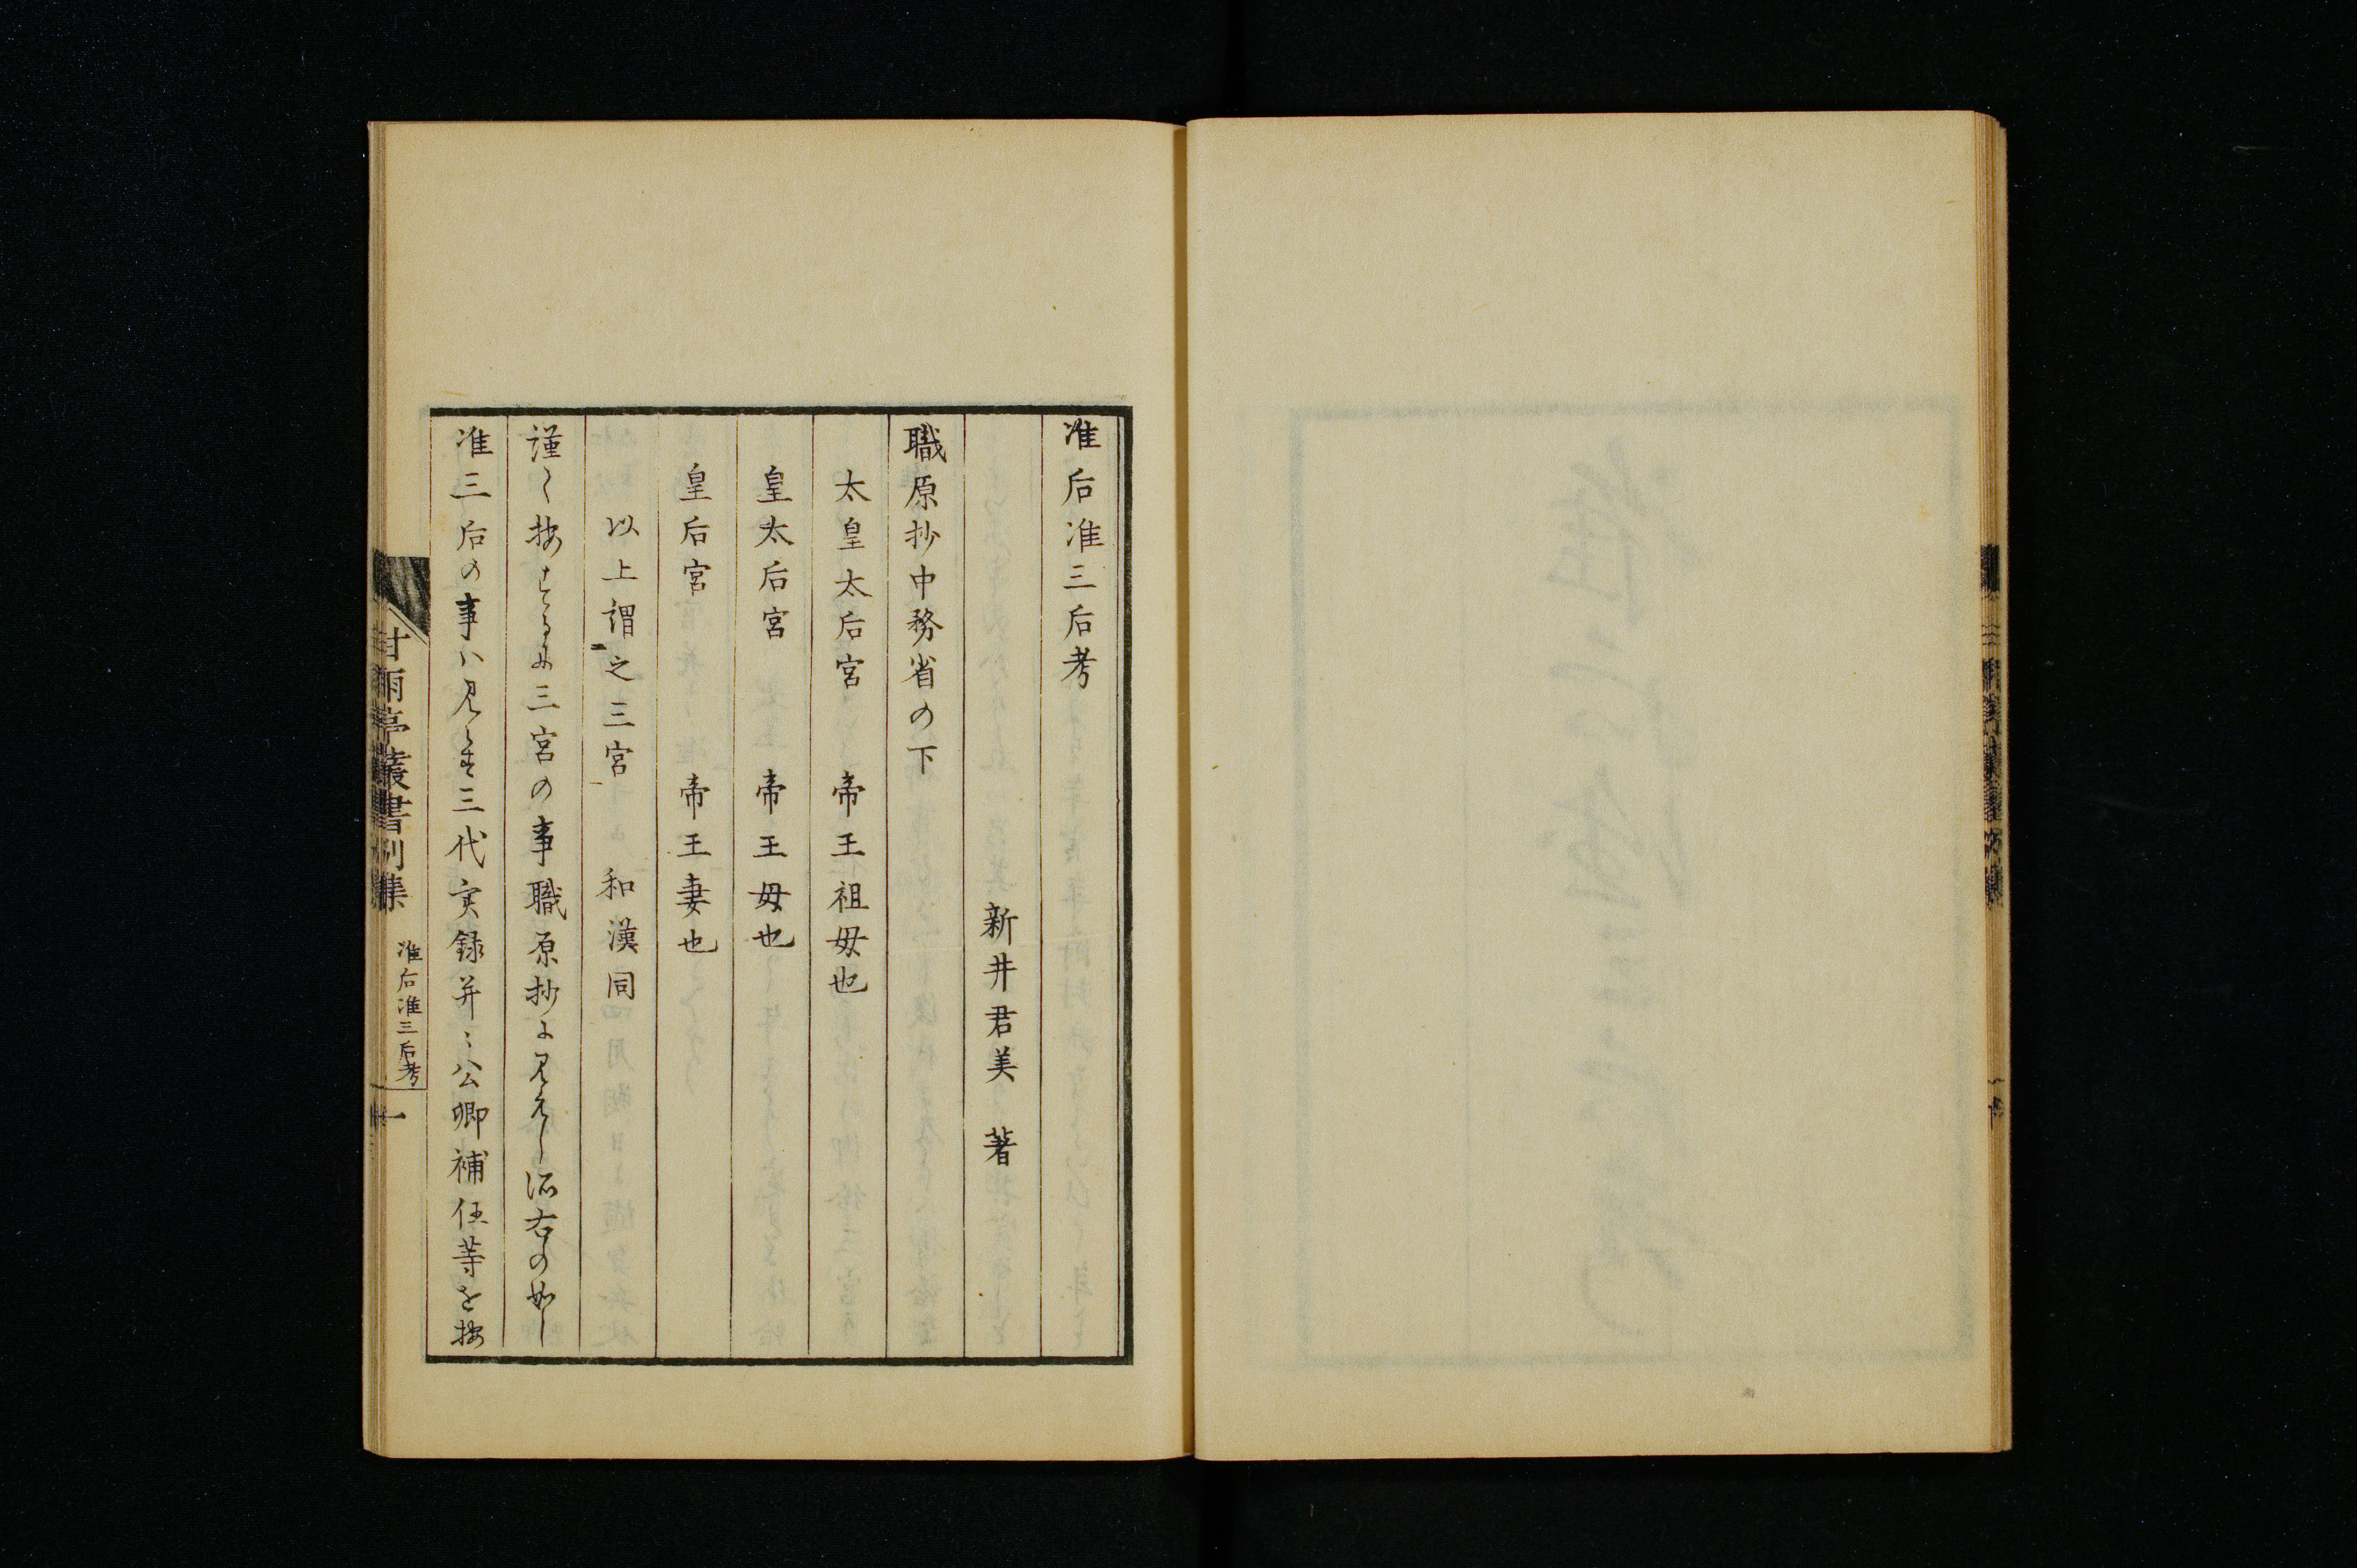 准后准三后考
新井君美　著
職原抄中務省の下
太皇太后宮　帝王祖母也
皇太后宮　帝王母也
皇后宮　帝王妻也
以上謂之三宮　和漢同
謹く按するに三宮の事職原抄に見えし所右の如し
准三后の事ハ見えす三代実録并ニ公卿補任等を按
甘雨亭叢書別集
准后准三后考
一